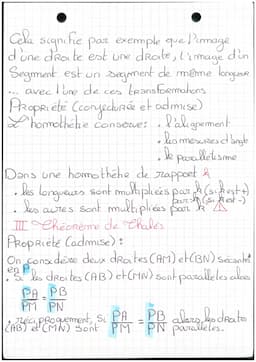 Cela signifie par exemple que l'image
d'une droite est une droite, l'image d'un
Segment est un segment de même longueur
... avec l'une de ces transformations
Propriété (conjecturée et admise)
L'homothétie conserve : • l'alignement
• les mesures d'angle
• le parallélisme
Dans une homothétie de rapport k
• les longueurs sont multipliées par k (si k est +)
par -k (si k est -)
• les aires sont multipliées par k²
III Théorème de Thalès
Propriété (admise) :
On considère deux droites (AM) et (BN) sécantes
en P
• Si les droites (AB) et (MN) sont parallèles alors
PA/PM = PB/PN
• Réciproquement, si PA/PM = PB/PN alors les droites
(AB) et (MN) sont parallèles.